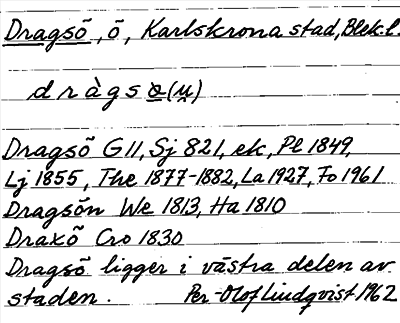 Dragsö, ö, Karlskrona stad, Blek. l.
dràgsø(u̯)
Dragsö G11, Sj 821, ek, Pl 1849,
Lj 1855, The 1877-1882, La 1927, Fo 1961
Dragsön We 1813, Ha 1810
Draxö Cro 1830
Dragsö ligger i västra delen av
staden. Per-Olof Lindqvist 1962